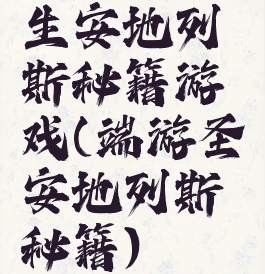 生安地列
斯秘籍游
戏(端游圣
安地列斯
秘籍)